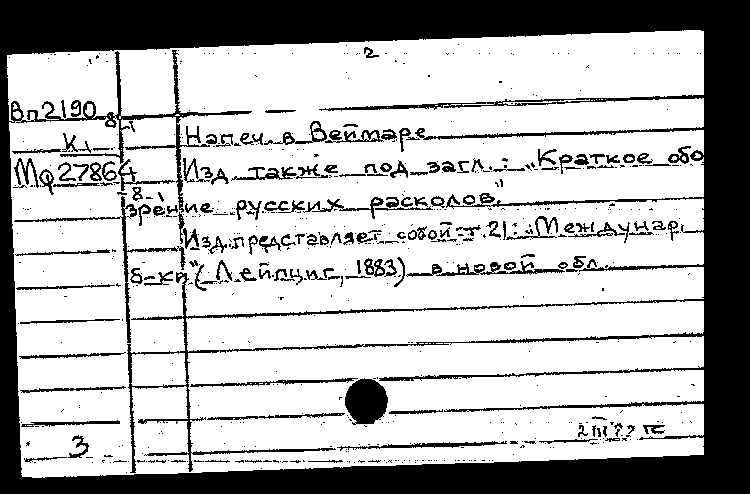 2
Вп2190
8-1
К1 Напеч. в Веймаре
Мф27864 Изд. также под загл.: „Краткое обо
8-1
зрение русских расколов."
Изд. представляет собой т. 21: „Междунар.
б-ки" (Лейпциг, 1883) в новой обл.
3